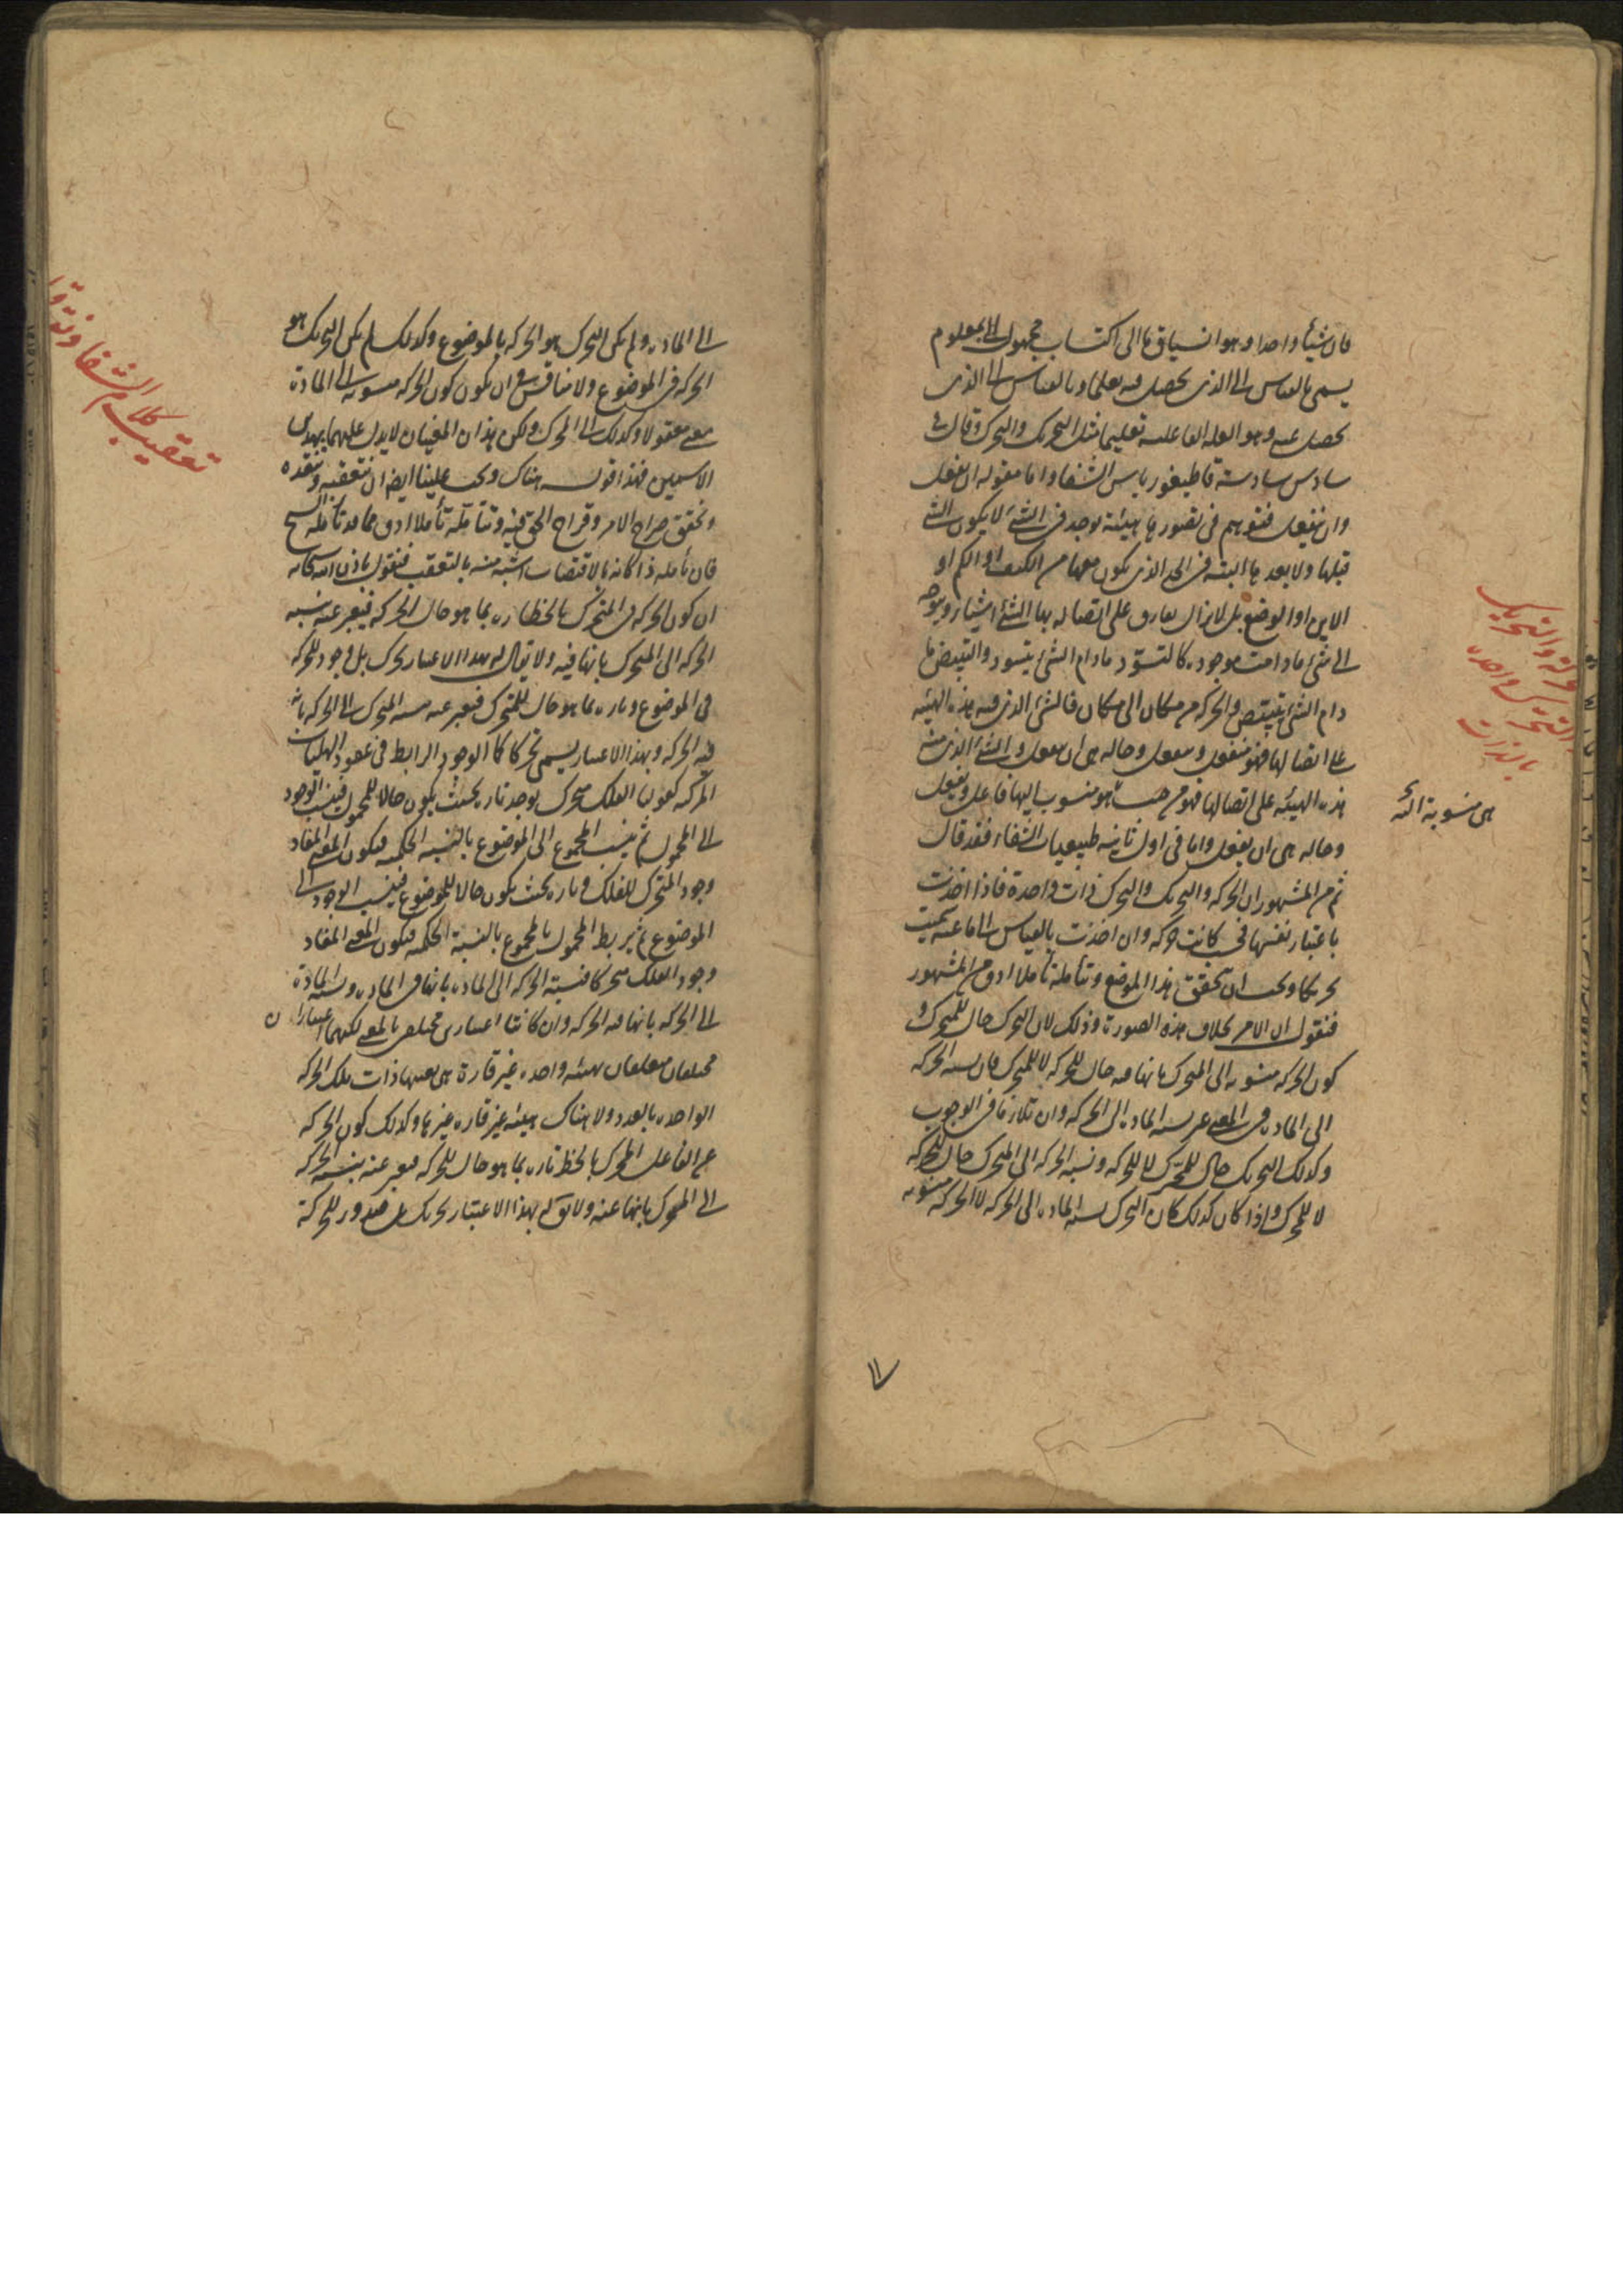 فان شيئا واحدا وهو انسياق ما الى اكتساب مجهول بمعلوم
يسمى بالقياس الى الذى يحصل فيه تعلما وبالقياس الى الذى
يحصل عنه وهو العله الفاعليه تعليما مثل التحريك والتحرك وقال فى
سادس سادسة قاطيغورياس الشفا واما مقوله ان يفعل
وان ينفعل فتوهم فى تصورها هيئة توجد فى الشئ لا يكون الشئ
قبلها ولا بعدها البته فى الحد الذى يكون معها من الكيف او الكم او
الاين او الوضع بل لا يزال يفارق على اتصاله بها الشئ شيئا ويتوجه
الى شئ ما دامت موجوده كالتسود مادام الشئ يتسود والتبيض ما
دام الشئ يتبيض والحركه من مكان الى مكان فالشئ الذى فيه هذه الهيئه
على اتصالها فهو منفعل وينفعل وحاله هى ان ينفعل والشئ الذى منه
هذه الهيئه على اتصالها فهو من حيث هو منسوب اليها فاعل ويفعل
وحاله هى ان يفعل واما فى اول ثانيه طبيعيات الشفاء فقد قال
ثم من المشهور ان الحركه والتحريك والتحرك ذات واحدة فاذا اخذت
باعتبار نفسها فحسب كانت حركه وان اخذت بالقياس الى ما فيه سميت
تحركا وان اخذت بالقياس الى ما عنه سميت
تحريكا ويجب ان نحقق هذا الموضع ونتأمله تأملا ادق من المشهور
فنقول ان الامر بخلاف هذه الصورة وذلك لان التحرك حال للمتحرك و
كون الحركه منسوبه الى المتحرك بانها فيه حال للحركه لا للمتحرك فان نسبه الحركه
الى الماده فى المعنى غير نسبه الماده الى الحركه وان تلازما فى الوجوب
وكذلك التحريك حال للمحرك لا للحركه ونسبه الحركه الى المحرك حال للحركه
لا للمحرك واذا كان كذلك كان التحرك نسبه الماده الى الحركه لا الحركه منسوبه
هى منسوبة اليه
الحركة والتحريك
والتحرك واحده
بالذات
الى الماده ولم يكن التحرك هو الحركه بالموضوع وكذلك لم يكن التحريك هو
الحركه فى الموضوع ولا مناقش فى ان يكون كون الحركه منسوبه الى الماده
معنى معقولا وكذلك الى المحرك ولكن هذان المعنيان لا يدل عليهما بهذين
الاسمين فهذا قوله هناك ويجب علينا ايضا ان نتعقبه وننقده
ونحقق صراح الامر وقراح الحق فيه ونتأمله تأملا ادق مما قد تأمله الشيخ
فان تأمله ذا كانه بالاقتضاب اشبه منه بالتعقب فنقول باذن الله سبحانه
ان كون الحركه فى المتحرك يلحظ تاره بما هو حال الحركه فيعبر عنه بنسبه
الحركه الى المتحرك بانها فيه ولا يقال له بهذا الاعتبار تحرك بل وجود للحركه
فى الموضوع وتاره بما هو حال للمتحرك فيعبر عنه بنسبه المتحرك الى الحركه بان
فيه الحركه وبهذا الاعتبار يسمى تحركا كما الوجود الرابط فى عقود الهليات
المركبه كقولنا الفلك متحرك يوجد تاره بحيث يكون حالا للمحمول فينسب الوجود
الى المحمول ثم ينسب المجموع الى الموضوع بالنسبه الحكميه فيكون المعنى المفاد
وجود المتحرك للفلك وتاره بحيث يكون حالا للموضوع فينسب الوجود الى
الموضوع ثم يربط المحمول بالمجموع بالنسبة الحكميه فيكون المعنى المفاد
وجود الفلك متحركا فنسبة الحركه الى الماده بانها فى الماده ونسبه الماده
الى الحركه بانها فيه الحركه وان كانتا اعتبارين مختلفين بالمعنى لكنهما اعتباران
مختلفان متعلقان بهيئه واحده غير قارة هى بعينها ذات تلك الحركه
الواحده بالعدد ولا هناك هيئه غير قاره غيرها وكذلك كون الحركه
عن الفاعل المحرك يلحظ تاره بما هو حال للحركه فيعبر عنه بنسبه الحركه
الى المحرك بانها عنه ولا يق له بهذا الاعتبار تحريك بل صدور للحركة
تعقيب كلام الشفا